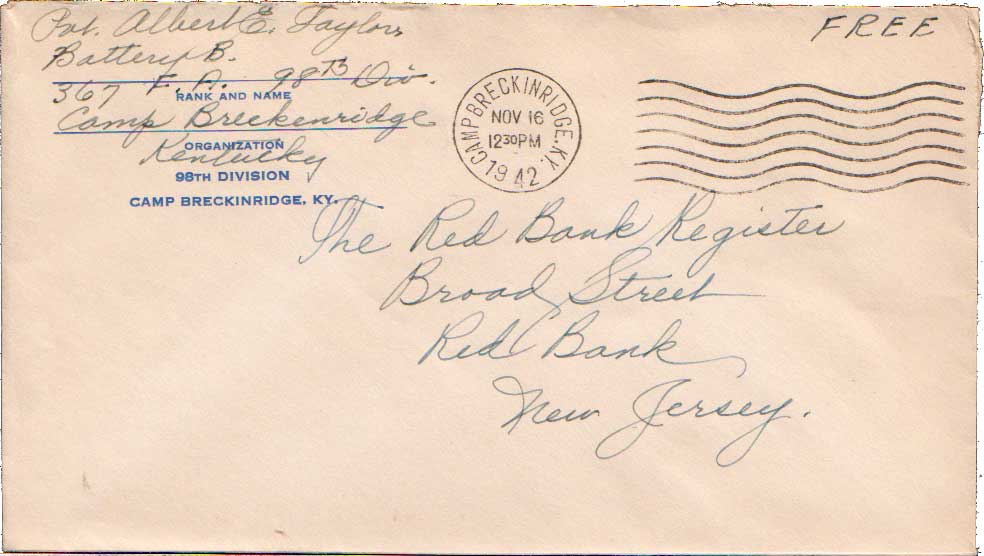 Pvt. Albert E. Taylor
Battery B.
367 F. A. 98TH Div.
RANK AND NAME
Camp Breckenridge
ORGANIZATION
Kentucky
98TH DIVISION
CAMP BRECKINRIDGE, KY.
FREE
CAMP BRECKINRIDGE, KY.
NOV 16
12 30 PM
1942
The Red Bank Register
Broad Street
Red Bank
New Jersey.